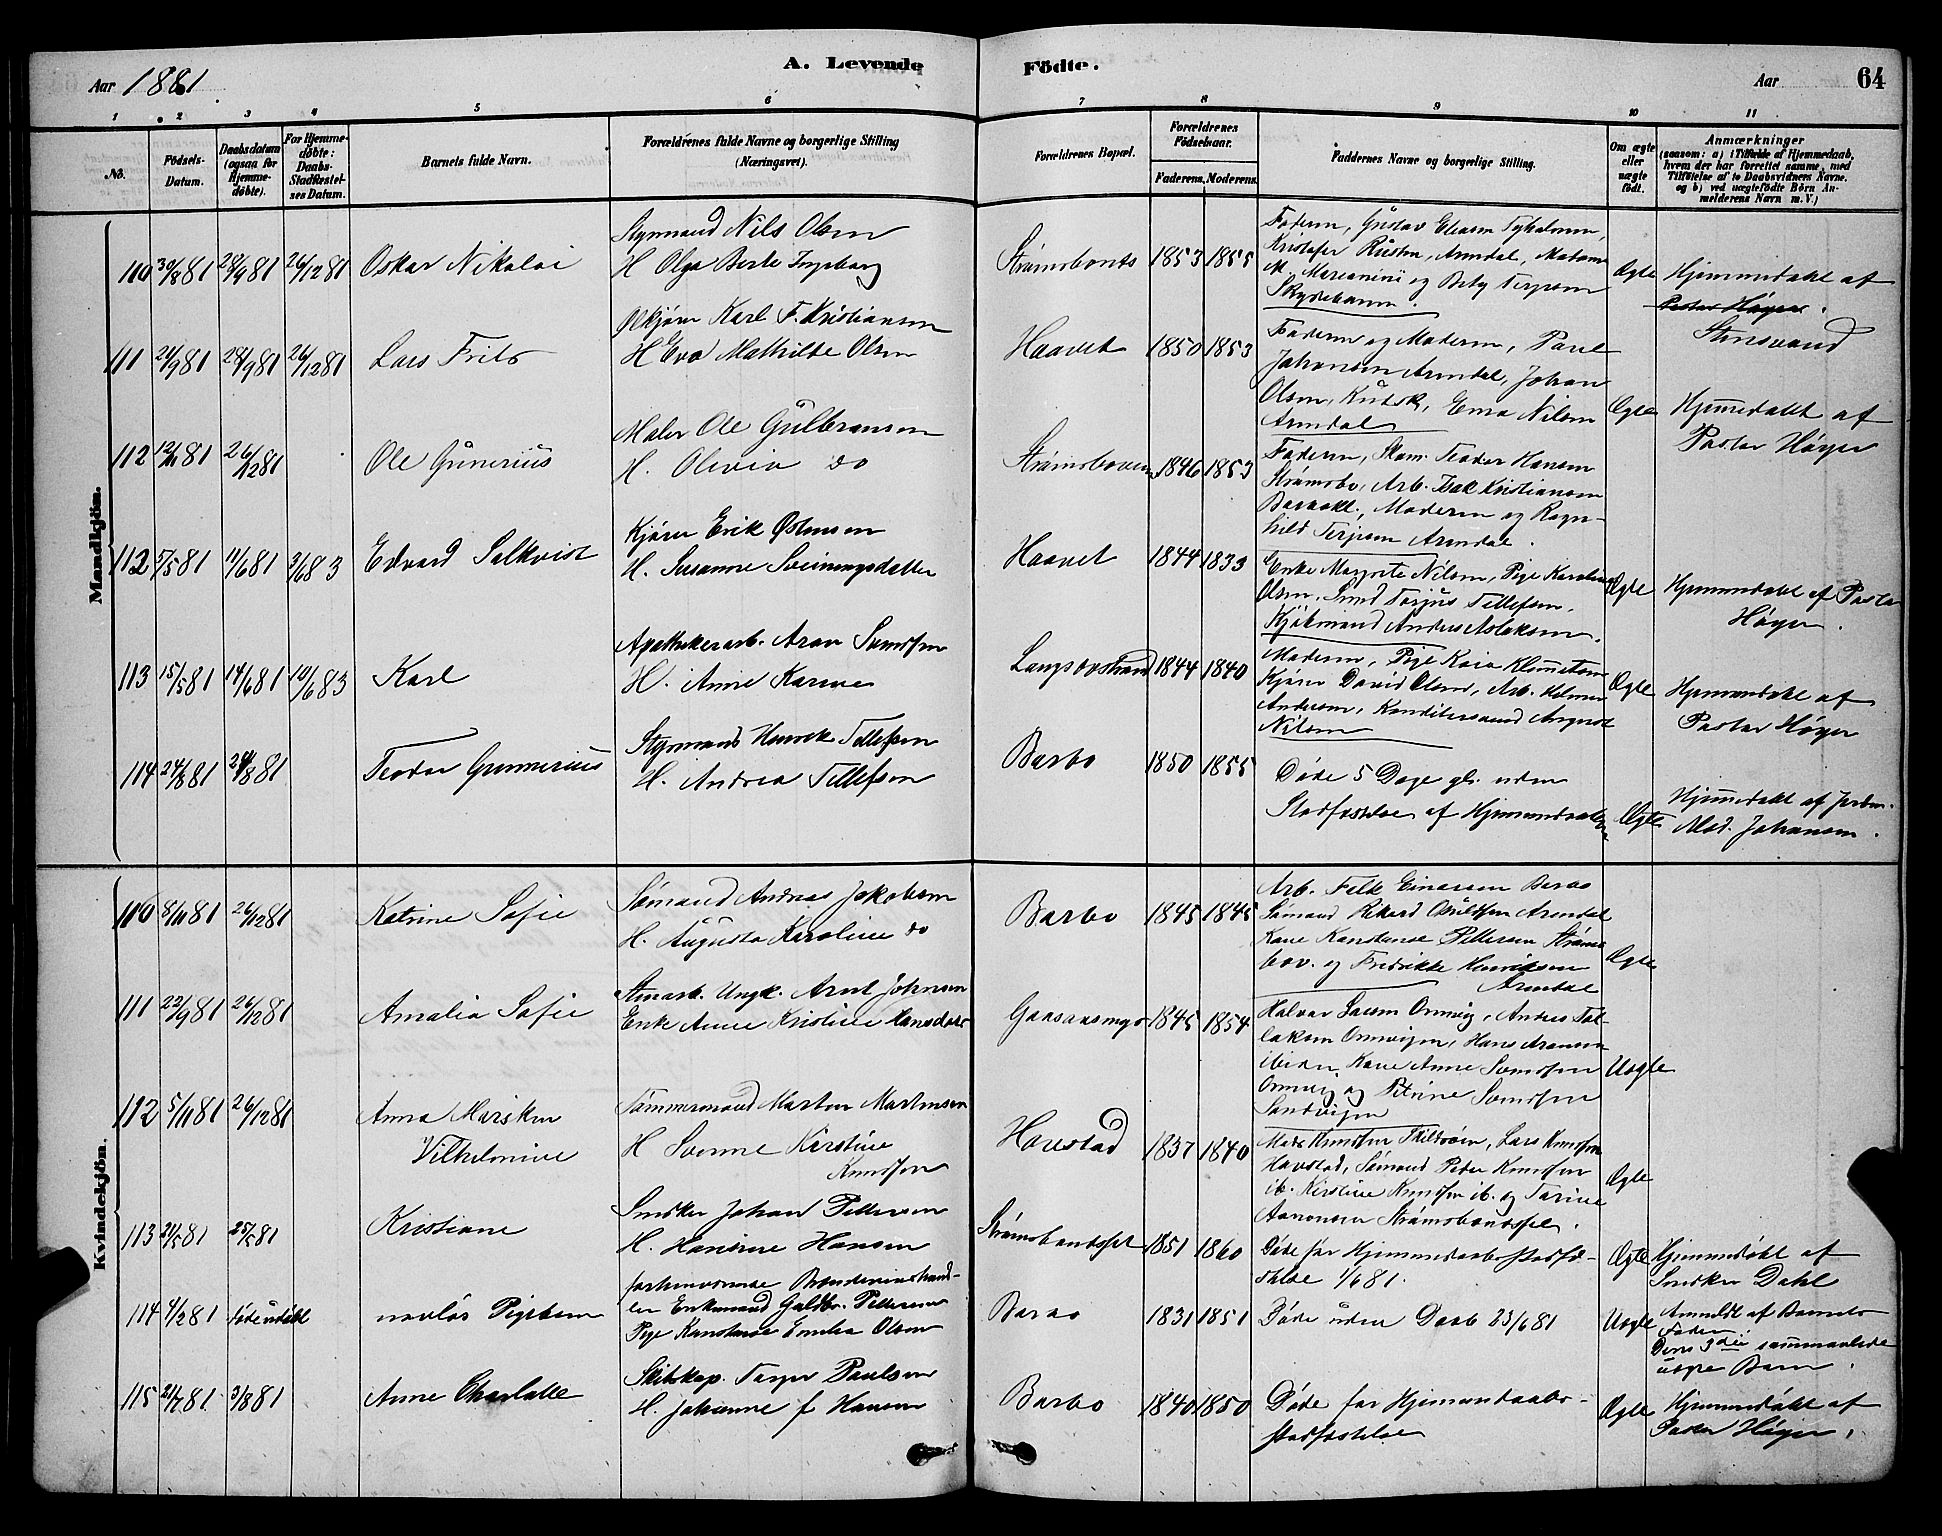 Aar 1881
A. Levende
Födte.
Aar
64
1 2 3 4 5 6 7 8 9 10 11
No.
Födsels-
Datum.
Daabsdatum
(ogsaa for
Hjemme-
döbte).
For Hjemme-
döbte:
Daabs-
Stadfæstel-
ses Datum.
Barnets fulde Navn.
Forældrenes fulde Navne og borgerlige Stilling
(Næringsvei).
Forældrenes Bopæl.
Forældrenes
Födselsaar.
Faderens.
Moderens.
Faddernes Navne og borgerlige Stilling.
Om ægte
eller
uægte
födt.
Anmærkninger
(saasom: a) i Tilfælde af Hjemmedaab,
hvem der har forrettet samme, med
Tilföielse af to Daabsvidners Navne.
og b) ved uægtefödte Börn An-
melderens Navn m. V.)
Mandkjön.
110 30/8 81 28/9 81 26/12 81 Oskar Nikolai
Styrmand Nils Olsen
H Olga Berte Ingeborg
Strømsbonts 1853 1855
Faderen, Gustav Eliasen Tyholmen,
Kristofer Rusten, Arendal, Madame
M. Mareanini og Bety Terjesen
Skydebanen.
Ægte
Hjemmedøbt af
Pastor Høyer.
Stinsvand
111 21/9 81 28/9 81 26/12 81 Lars Frits
Ølkjører Karl F. Kristiansen
H Eva Mathilde Olsen
Haavet 1850 1853
Faderen og Moderen, Paul
Johansen Arendal, Johan
Olsen, Kudsk, Ema Nilsen
Arendal
Ægte
Hjemmedøbt af
Pastor Høyer
112 12/11 81 26/12 81 Ole Gunerius
Maler Ole Gulbransen
H. Olivia do
Strømsboveien 1846 1853
Faderen, Skom. Teodor Hansen
Strømsbo, Arb. Isak Kristiansen
Barbokl., Moderen og Ragn-
hild Terjesen Arendal.
112 5/5 81 11/6 81 3/6 83 Edvard Salkvist
Kjører Erik Østensen
H. Susanne Sveinungsdatter
Haavet 1844 1833
Enke Margrete Nilsen, Pige Karoline
Olsen, Smed Tarjus Tellefsen,
Kjøbmand Anders Aslaksen.
Ægte
Hjemmedøbt af Pastor
Høyer.
113 15/5 81 14/6 81 10/6 83 Karl
Apothekerarb. Aron Svendsen
H. Anne Karine
Langsævstrand 1844 1840
Moderen, Pige Kaia Klemetsen
Kjører David Olsen, Arb. Helmer
Andersen, Konditersvend August
Nilsen
Ægte
Hjemmedøbt af
Pastor Høyer
114 24/8 81 24/8 81 Teodor Gunnerius
Styrmand Henrik Tellefsen
H. Andrea Tellefsen
Barbo 1850 1855
Døde 5 Dage gl. uden
Stadfæstelse af Hjemmedaaben
Ægte
Hjemmedøbt af Jordm.
Mad. Johansen.
Kvindekjön.
110 8/11 81 26/12 81 Katrine Sofie
Sømand Andreas Jakobsen
H. Augusta Karoline do
Barbo 1845 1845
Arb. Falk Einarsen Barbo
Sømand Rikard Osuldsen Arendal
Kone Konstanse Pettersen Strøms
bov. og Fredrikke Henriksen
Arendal
Ægte
111 22/9 81 26/12 81 Amalia Sofie
Stenarb. Ungk. Arnt Johnsen
Enke Anne Kristine Hansdatter
Gaasaasmyr 1845 1854
Halvor Larsen Omvig, Anders Tel-
laksen Omvigen, Hans Aronsen
ibiden Kone Anne Svendsen
Omvig og Petrine Svendsen
Sandvigen
Uægte
112 5/11 81 26/12 81 Anna Marsken
Vilhelmine
Tømmermand Morten Martinsen
H Svenne Kirstine
Knudsen
Havstad 1837 1840
Mads Knudsen Skilsøen, Lars Knudsen
Havstad, Sømand Peder Knudsen
ib. Kirstine Knudsen ib. og Tarine
Aanonsen Strømsbontspel.
Ægte
113 21/5 81 25/5 81 Kristiane
Snedker Johan Pettersen
H. Hansine Hansen
Strømsbontspel 1851 1860
Døde før Hjemmedaabsstadfæ-
stelse 1/6 81.
Ægte
Hjemmedøbt af
Snedker Dahl
114 4/2 81 døde udøbt navnløs Pigebarn
forhenværende Brændevinshand-
ler Enkemand Guldbr. Pettersen
Pige Konstanse Emilia Olsen
Barbo 1831 1851
Døde uden Daab 23/6 81
Uægte
Anmeldt af Barnets
Fader
Deres 3die sammenlede
uægte Barn.
115 21/7 81 3/8 81 Anne Charlotte
Skibskap. Terjer Paulsen
H. Johanne f Hansen
Barbo 1840 1850
Døde før Hjemmedaabs-
stadfæstelse
Ægte
Hjemmedøbt af
Pastor Høyer.